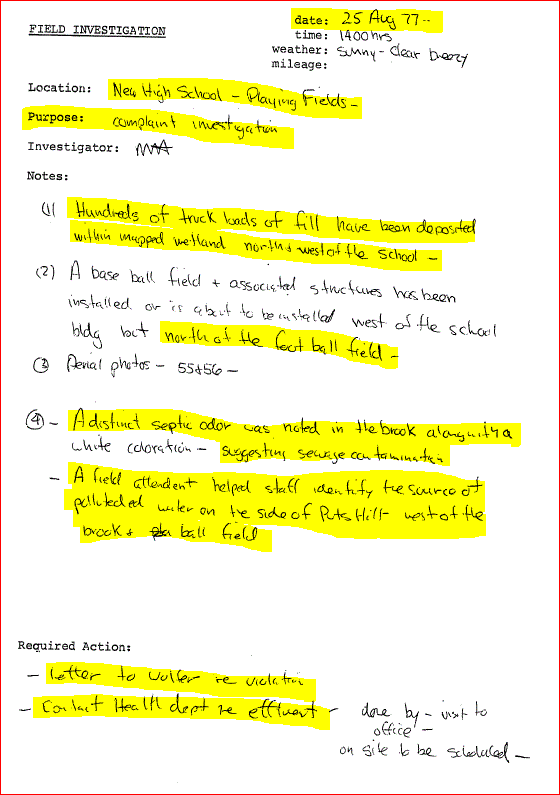 FIELD INVESTIGATION
date: 25 Aug 77--
time: 1400hrs
weather: Sunny - Clear breezy
mileage:
Location: New High School - Playing Fields -
Purpose: complaint investigation
Investigator:
Notes:
(1) Hundreds of truck loads of fill have been deposited
within mapped wetland north & west of the school -
(2) A base ball field + associated structures has been
installed or is about to be installed west of the school
bldg but north of the foot ball field -
(3) Aerial photos - 55&56 -
(4) - A distinct septic odor was noted in the brook along with a
white coloration - suggesting sewage contamination
- A field attendent helped staff identify the source of
polluted water on the side of Puts Hill - west of the
brook & ball field
Required Action:
- Letter to Wolfer re violation
- Contact Health dept re effluent - done by - visit to
office -
on site to be scheduled -